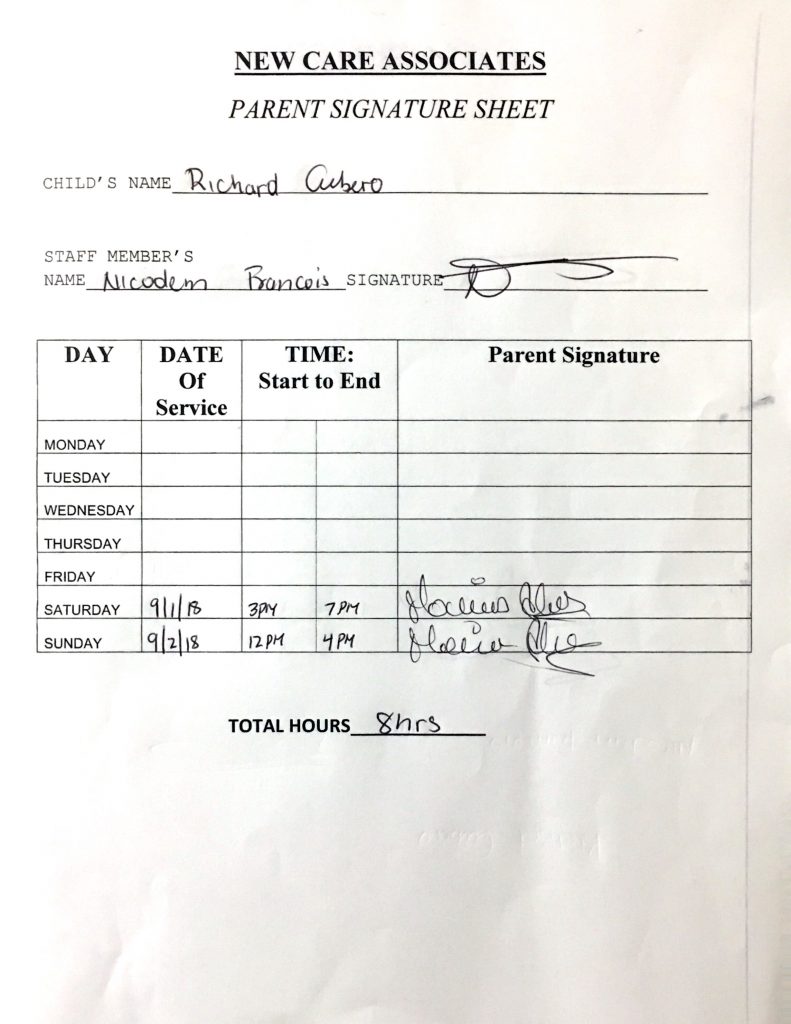 NEW CARE ASSOCIATES
PARENT SIGNATURE SHEET
CHILD'S NAME Richard Cubero
STAFF MEMBER'S
NAME Nicodem Francois SIGNATURE
DAY DATE Of Service TIME: Start to End Parent Signature
MONDAY
TUESDAY
WEDNESDAY
THURSDAY
FRIDAY
SATURDAY 9/1/18 3PM 7PM
SUNDAY 9/2/18 12PM 4PM
TOTAL HOURS 8hrs